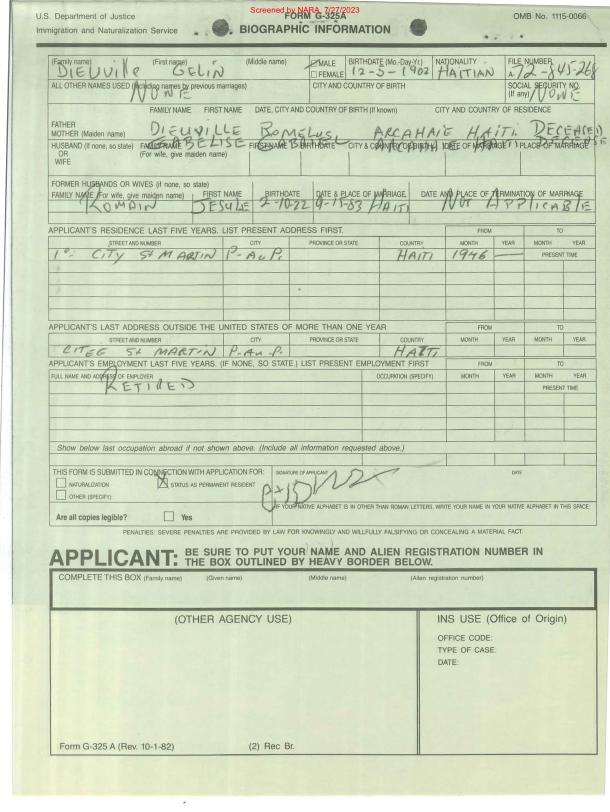 Screened by NARA, 7/27/2023
U.S. Department of Justice
FORM G-325A
OMB No. 1115-0066
Immigration and Naturalization Service
BIOGRAPHIC INFORMATION
(Family name) (First name) (Middle name) MALE BIRTHDATE (Mo.-Day-Yr.) NATIONALITY FILE NUMBER
DIEUVille GELIN FEMALE 12-5-1902 HAITIAN A-72-845-268
ALL OTHER NAMES USED (Including names by previous marriages) CITY AND COUNTRY OF BIRTH SOCIAL SECURITY NO. (If any)
NONE NONE
FAMILY NAME FIRST NAME DATE, CITY AND COUNTRY OF BIRTH (If known) CITY AND COUNTRY OF RESIDENCE
FATHER DIEUVILLE ROMELUS ARCAHAIE HAITI DECEASED
MOTHER (Maiden name)
HUSBAND (If none, so state) FAMILY NAME FIRST NAME BIRTHDATE CITY & COUNTRY OF BIRTH DATE OF MARRIAGE PLACE OF MARRIAGE
OR (For wife, give maiden name)
WIFE
FORMER HUSBANDS OR WIVES (if none, so state)
FAMILY NAME (For wife, give maiden name) FIRST NAME BIRTHDATE DATE & PLACE OF MARRIAGE DATE AND PLACE OF TERMINATION OF MARRIAGE
ROMAIN JESULE 2-10-22 9-15-83 HAITI NOT APPLICABLE
APPLICANT'S RESIDENCE LAST FIVE YEARS. LIST PRESENT ADDRESS FIRST. FROM TO
STREET AND NUMBER CITY PROVINCE OR STATE COUNTRY MONTH YEAR MONTH YEAR
CITY St MARTIN P-Au P. HAITI 1946 PRESENT TIME
APPLICANT'S LAST ADDRESS OUTSIDE THE UNITED STATES OF MORE THAN ONE YEAR FROM TO
STREET AND NUMBER CITY PROVINCE OR STATE COUNTRY MONTH YEAR MONTH YEAR
CITEE St MARTIN P-Au-P. HAITI
APPLICANT'S EMPLOYMENT LAST FIVE YEARS. (IF NONE, SO STATE.) LIST PRESENT EMPLOYMENT FIRST FROM TO
FULL NAME AND ADDRESS OF EMPLOYER OCCUPATION (SPECIFY) MONTH YEAR MONTH YEAR
RETIRED PRESENT TIME
Show below last occupation abroad if not shown above. (Include all information requested above.)
THIS FORM IS SUBMITTED IN CONNECTION WITH APPLICATION FOR: SIGNATURE OF APPLICANT DATE
NATURALIZATION X STATUS AS PERMANENT RESIDENT
OTHER (SPECIFY):
IF YOUR NATIVE ALPHABET IS IN OTHER THAN ROMAN LETTERS, WRITE YOUR NAME IN YOUR NATIVE ALPHABET IN THIS SPACE:
Are all copies legible? Yes
PENALTIES: SEVERE PENALTIES ARE PROVIDED BY LAW FOR KNOWINGLY AND WILLFULLY FALSIFYING OR CONCEALING A MATERIAL FACT.
APPLICANT: BE SURE TO PUT YOUR NAME AND ALIEN REGISTRATION NUMBER IN
THE BOX OUTLINED BY HEAVY BORDER BELOW.
COMPLETE THIS BOX (Family name) (Given name) (Middle name) (Alien registration number)
(OTHER AGENCY USE) INS USE (Office of Origin)
OFFICE CODE:
TYPE OF CASE:
DATE:
Form G-325 A (Rev. 10-1-82) (2) Rec Br.